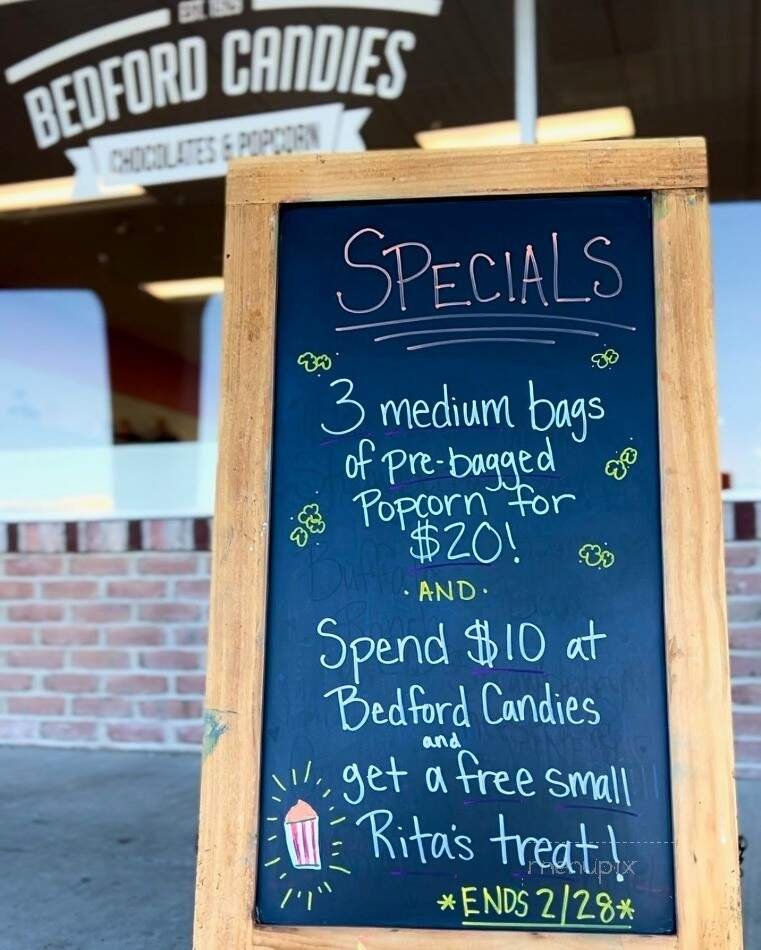 EST. 1929
BEDFORD CANDIES
CHOCOLATES & POPCORN
SPECIALS
3 medium bags
of pre-bagged
Popcorn for
$20!
·AND·
Spend $10 at
Bedford Candies
and
get a free small
Rita's treat!
menupix
*ENDS 2/28*